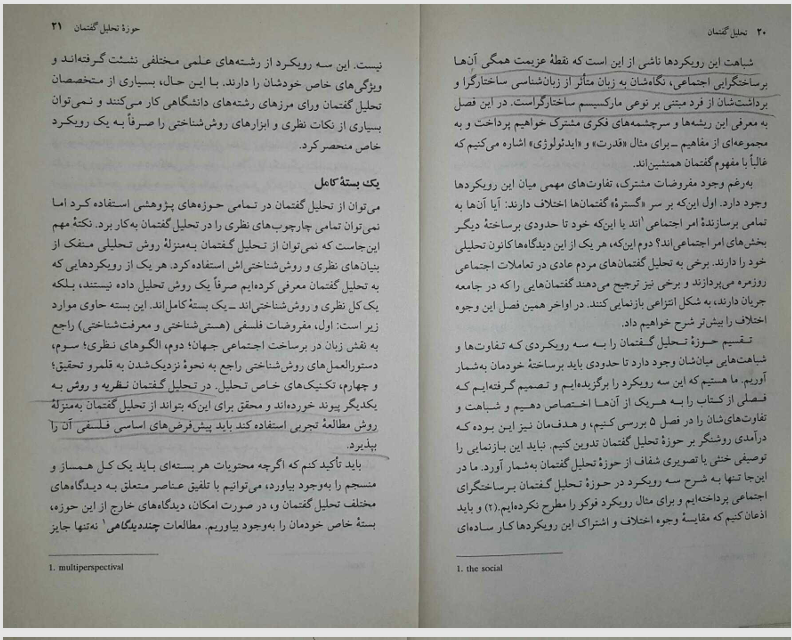 ۲۰ تحلیل گفتمان
شباهت این رویکردها ناشی از این است که نقطهٔ عزیمت همگی آن‌ها
برساختگرایی اجتماعی، نگاه‌شان به زبان متأثر از زبان‌شناسی ساختارگرا و
برداشت‌شان از فرد مبتنی بر نوعی مارکسیسم ساختارگراست. در این فصل
به معرفی این ریشه‌ها و سرچشمه‌های فکری مشترک خواهیم پرداخت و به
مجموعه‌ای از مفاهیم ـ برای مثال «قدرت» و «ایدئولوژی» اشاره می‌کنیم که
غالباً با مفهوم گفتمان همنشین‌اند.
به‌رغم وجود مفروضات مشترک، تفاوت‌های مهمی میان این رویکردها
وجود دارد. اول این‌که بر سر «گسترهٔ» گفتمان‌ها اختلاف دارند: آیا آن‌ها به
تمامی برسازندهٔ امر اجتماعی۱ اند یا این‌که خود تا حدودی برساختهٔ دیگر
بخش‌های امر اجتماعی‌اند؟ دوم این‌که، هر یک از این دیدگاه‌ها کانون تحلیلی
خود را دارند. برخی به تحلیل گفتمان‌های مردم عادی در تعاملات اجتماعی
روزمره می‌پردازند و برخی نیز ترجیح می‌دهند گفتمان‌هایی را که در جامعه
جریان دارند، به شکل انتزاعی بازنمایی کنند. در اواخر همین فصل این وجوه
اختلاف را بیش‌تر شرح خواهیم داد.
تقسیم حوزهٔ تحلیل گفتمان را به سه رویکردی که تفاوت‌ها و
شباهت‌هایی میان‌شان وجود دارد تا حدودی باید برساختهٔ خودمان به‌شمار
آوریم. ما هستیم که این سه رویکرد را برگزیده‌ایم و تصمیم گرفته‌ایم که
فصلی از کتاب را به هر یک از آن‌ها اختصاص دهیم و شباهت و
تفاوت‌های‌شان را در فصل ۵ بررسی کنیم، و هدف‌مان نیز این بوده که
درآمدی روشنگر بر حوزهٔ تحلیل گفتمان تدوین کنیم. نباید این بازنمایی را
توصیفی خنثی یا تصویری شفاف از حوزهٔ تحلیل گفتمان به‌شمار آورد. ما در
این‌جا تنها به شرح سه رویکرد در حوزهٔ تحلیل گفتمان برساختگرای
اجتماعی پرداخته‌ایم و برای مثال رویکرد فوکو را مطرح نکرده‌ایم.(۲) و باید
اذعان کنیم که مقایسهٔ وجوه اختلاف و اشتراک این رویکردها کار ساده‌ای
1. the social
حوزهٔ تحلیل گفتمان ۲۱
نیست. این سه رویکرد از رشته‌های علمی مختلفی نشئت گرفته‌اند و
ویژگی‌های خاص خودشان را دارند. با این حال، بسیاری از متخصصان
تحلیل گفتمان ورای مرزهای رشته‌های دانشگاهی کار می‌کنند و نمی‌توان
بسیاری از نکات نظری و ابزارهای روش‌شناختی را صرفاً به یک رویکرد
خاص منحصر کرد.
یک بستهٔ کامل
می‌توان از تحلیل گفتمان در تمامی حوزه‌های پژوهشی استفاده کرد اما
نمی‌توان تمامی چارچوب‌های نظری را در تحلیل گفتمان به‌کار برد. نکتهٔ مهم
این‌جاست که نمی‌توان از تحلیل گفتمان به‌منزلهٔ روش تحلیلی منفک از
بنیان‌های نظری و روش‌شناختی‌اش استفاده کرد. هر یک از رویکردهایی که
به تحلیل گفتمان معرفی کرده‌ایم صرفاً یک روش تحلیل داده نیستند، بلکه
یک کل نظری و روش‌شناختی‌اند ـ یک بستهٔ کامل‌اند. این بسته حاوی موارد
زیر است: اول، مفروضات فلسفی (هستی‌شناختی و معرفت‌شناختی) راجع
به نقش زبان در برساخت اجتماعی جهان؛ دوم، الگوهای نظری؛ سوم،
دستورالعمل‌های روش‌شناختی راجع به نحوهٔ نزدیک‌شدن به قلمرو تحقیق؛
و چهارم، تکنیک‌های خاص تحلیل. در تحلیل گفتمان نظریه و روش به
یکدیگر پیوند خورده‌اند و محقق برای این‌که بتواند از تحلیل گفتمان به‌منزلهٔ
روش مطالعهٔ تجربی استفاده کند باید پیش‌فرض‌های اساسی فلسفی آن را
بپذیرد.
باید تأکید کنم که اگرچه محتویات هر بسته‌ای باید یک کل همساز و
منسجم را به‌وجود بیاورد، می‌توانیم با تلفیق عناصر متعلق به دیدگاه‌های
مختلف تحلیل گفتمان و، در صورت امکان، دیدگاه‌های خارج از این حوزه،
بستهٔ خاص خودمان را به‌وجود بیاوریم. مطالعات چنددیدگاهی۱ نه‌تنها جایز
1. multiperspectival